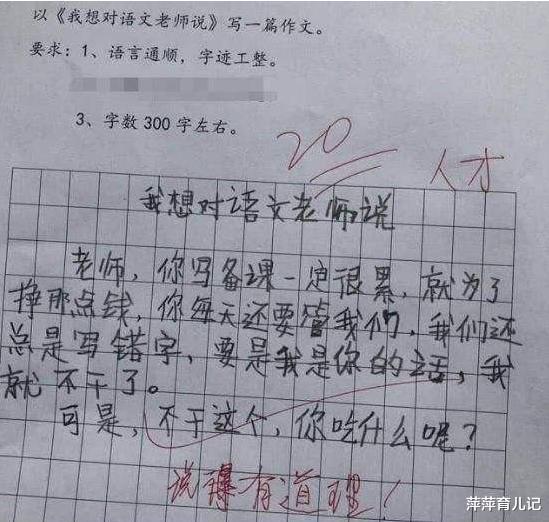 以《我想对语文老师说》写一篇作文。
要求：1、语言通顺，字迹工整。
3、字数300字左右。
20
人才
我想对语文老师说
老师，你写备课一定很累，就为了
挣那点钱，你每天还要管我们，我们还
总是写错字，要是我是你的话，我
就不干了。
可是，不干这个，你吃什么呢？
说得有道理！
萍萍育儿记